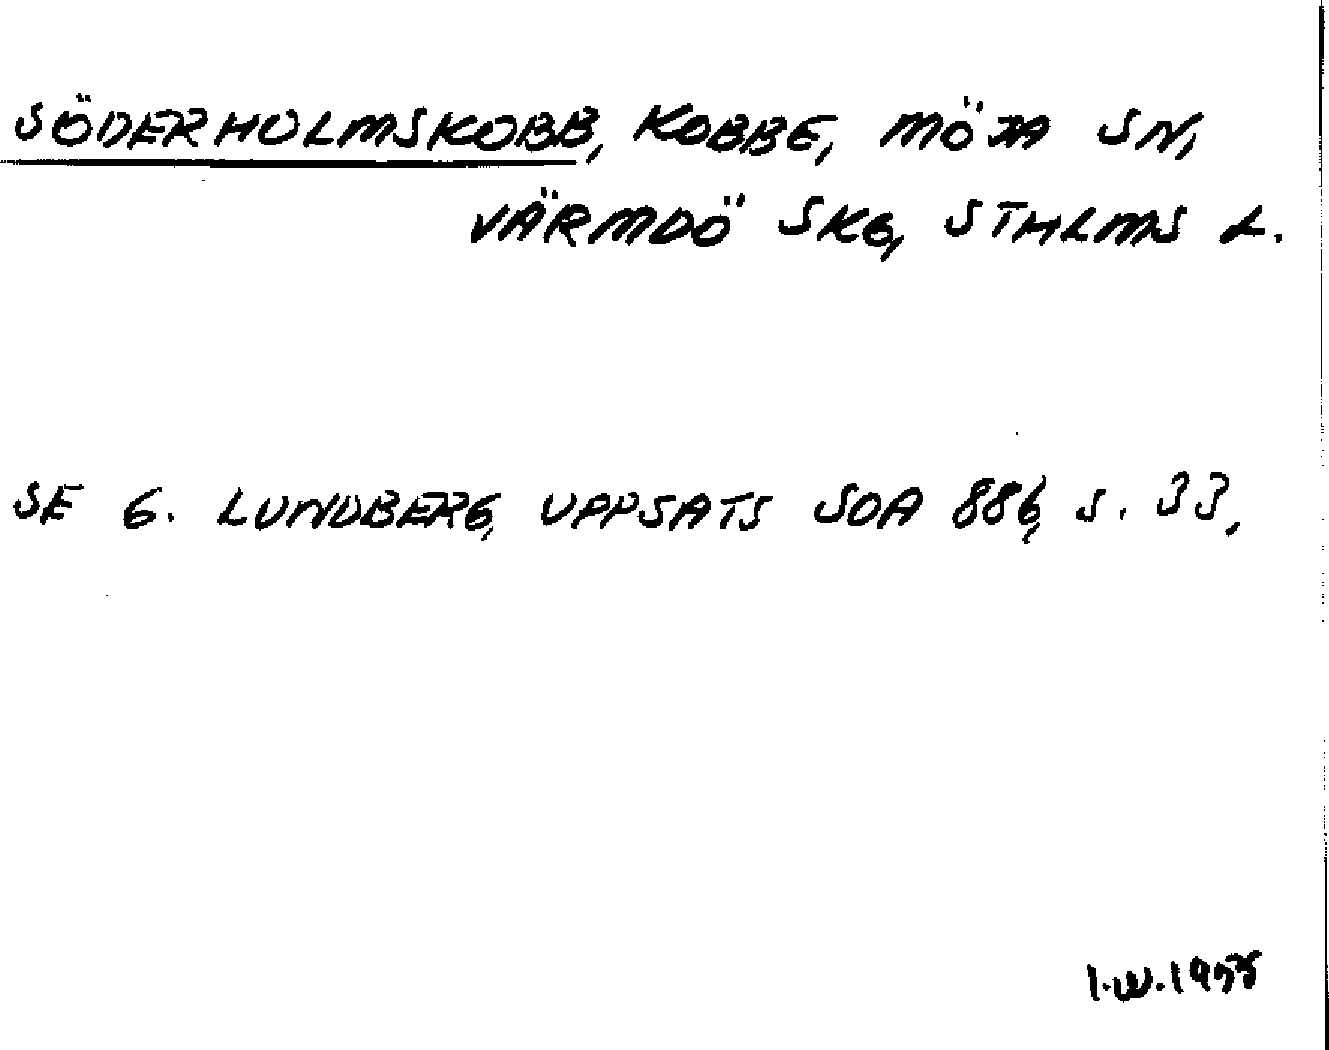 SÖDERHOLMSKOBB, KOBBE, MÖJA SN,
VÄRMDÖ SKG, STHLMS L.
SE G. LUNDBERG, UPPSATS SOA 886, S. 33,
I.W.